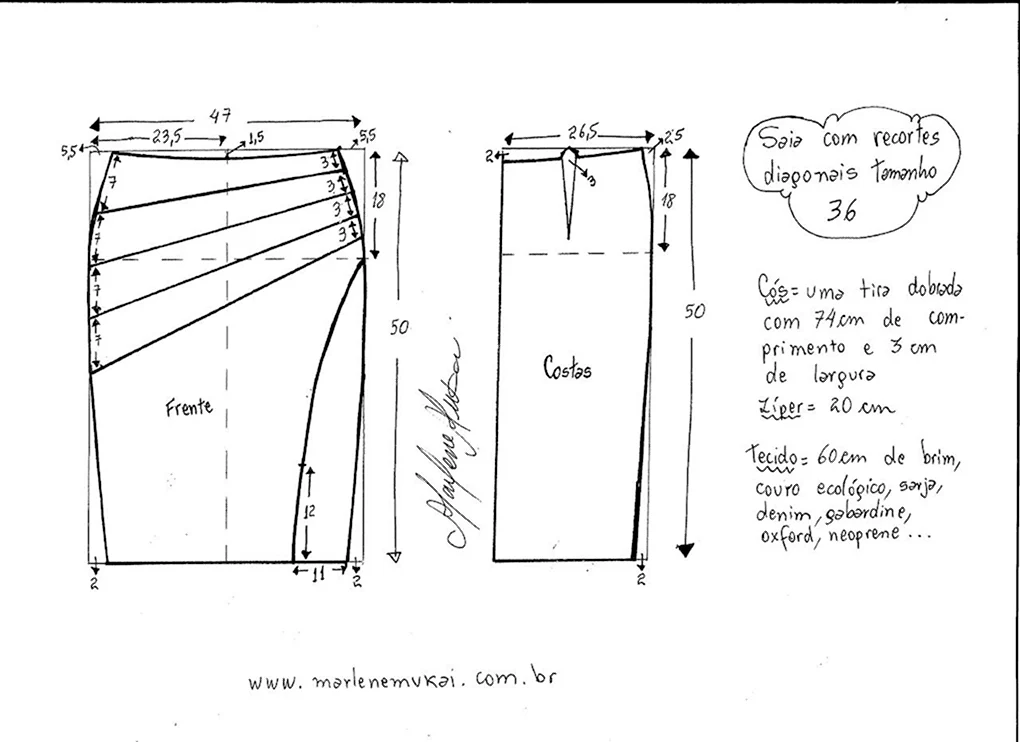 47
23,5
1,5
5,5
5,5
7
7
7
7
3
3
3
3
18
50
Frente
12
11
2
2
Marlene Mukai
26,5
2,5
2
3
18
50
Costas
2
Saia com recortes
diagonais tamanho
36
Cós = uma tira dobrada
com 74cm de com-
primento e 3 cm
de largura
Zíper = 20 cm
Tecido = 60cm de brim,
couro ecológico, sarja,
denim, gabardine,
oxford, neoprene ...
www.marlenemukai.com.br